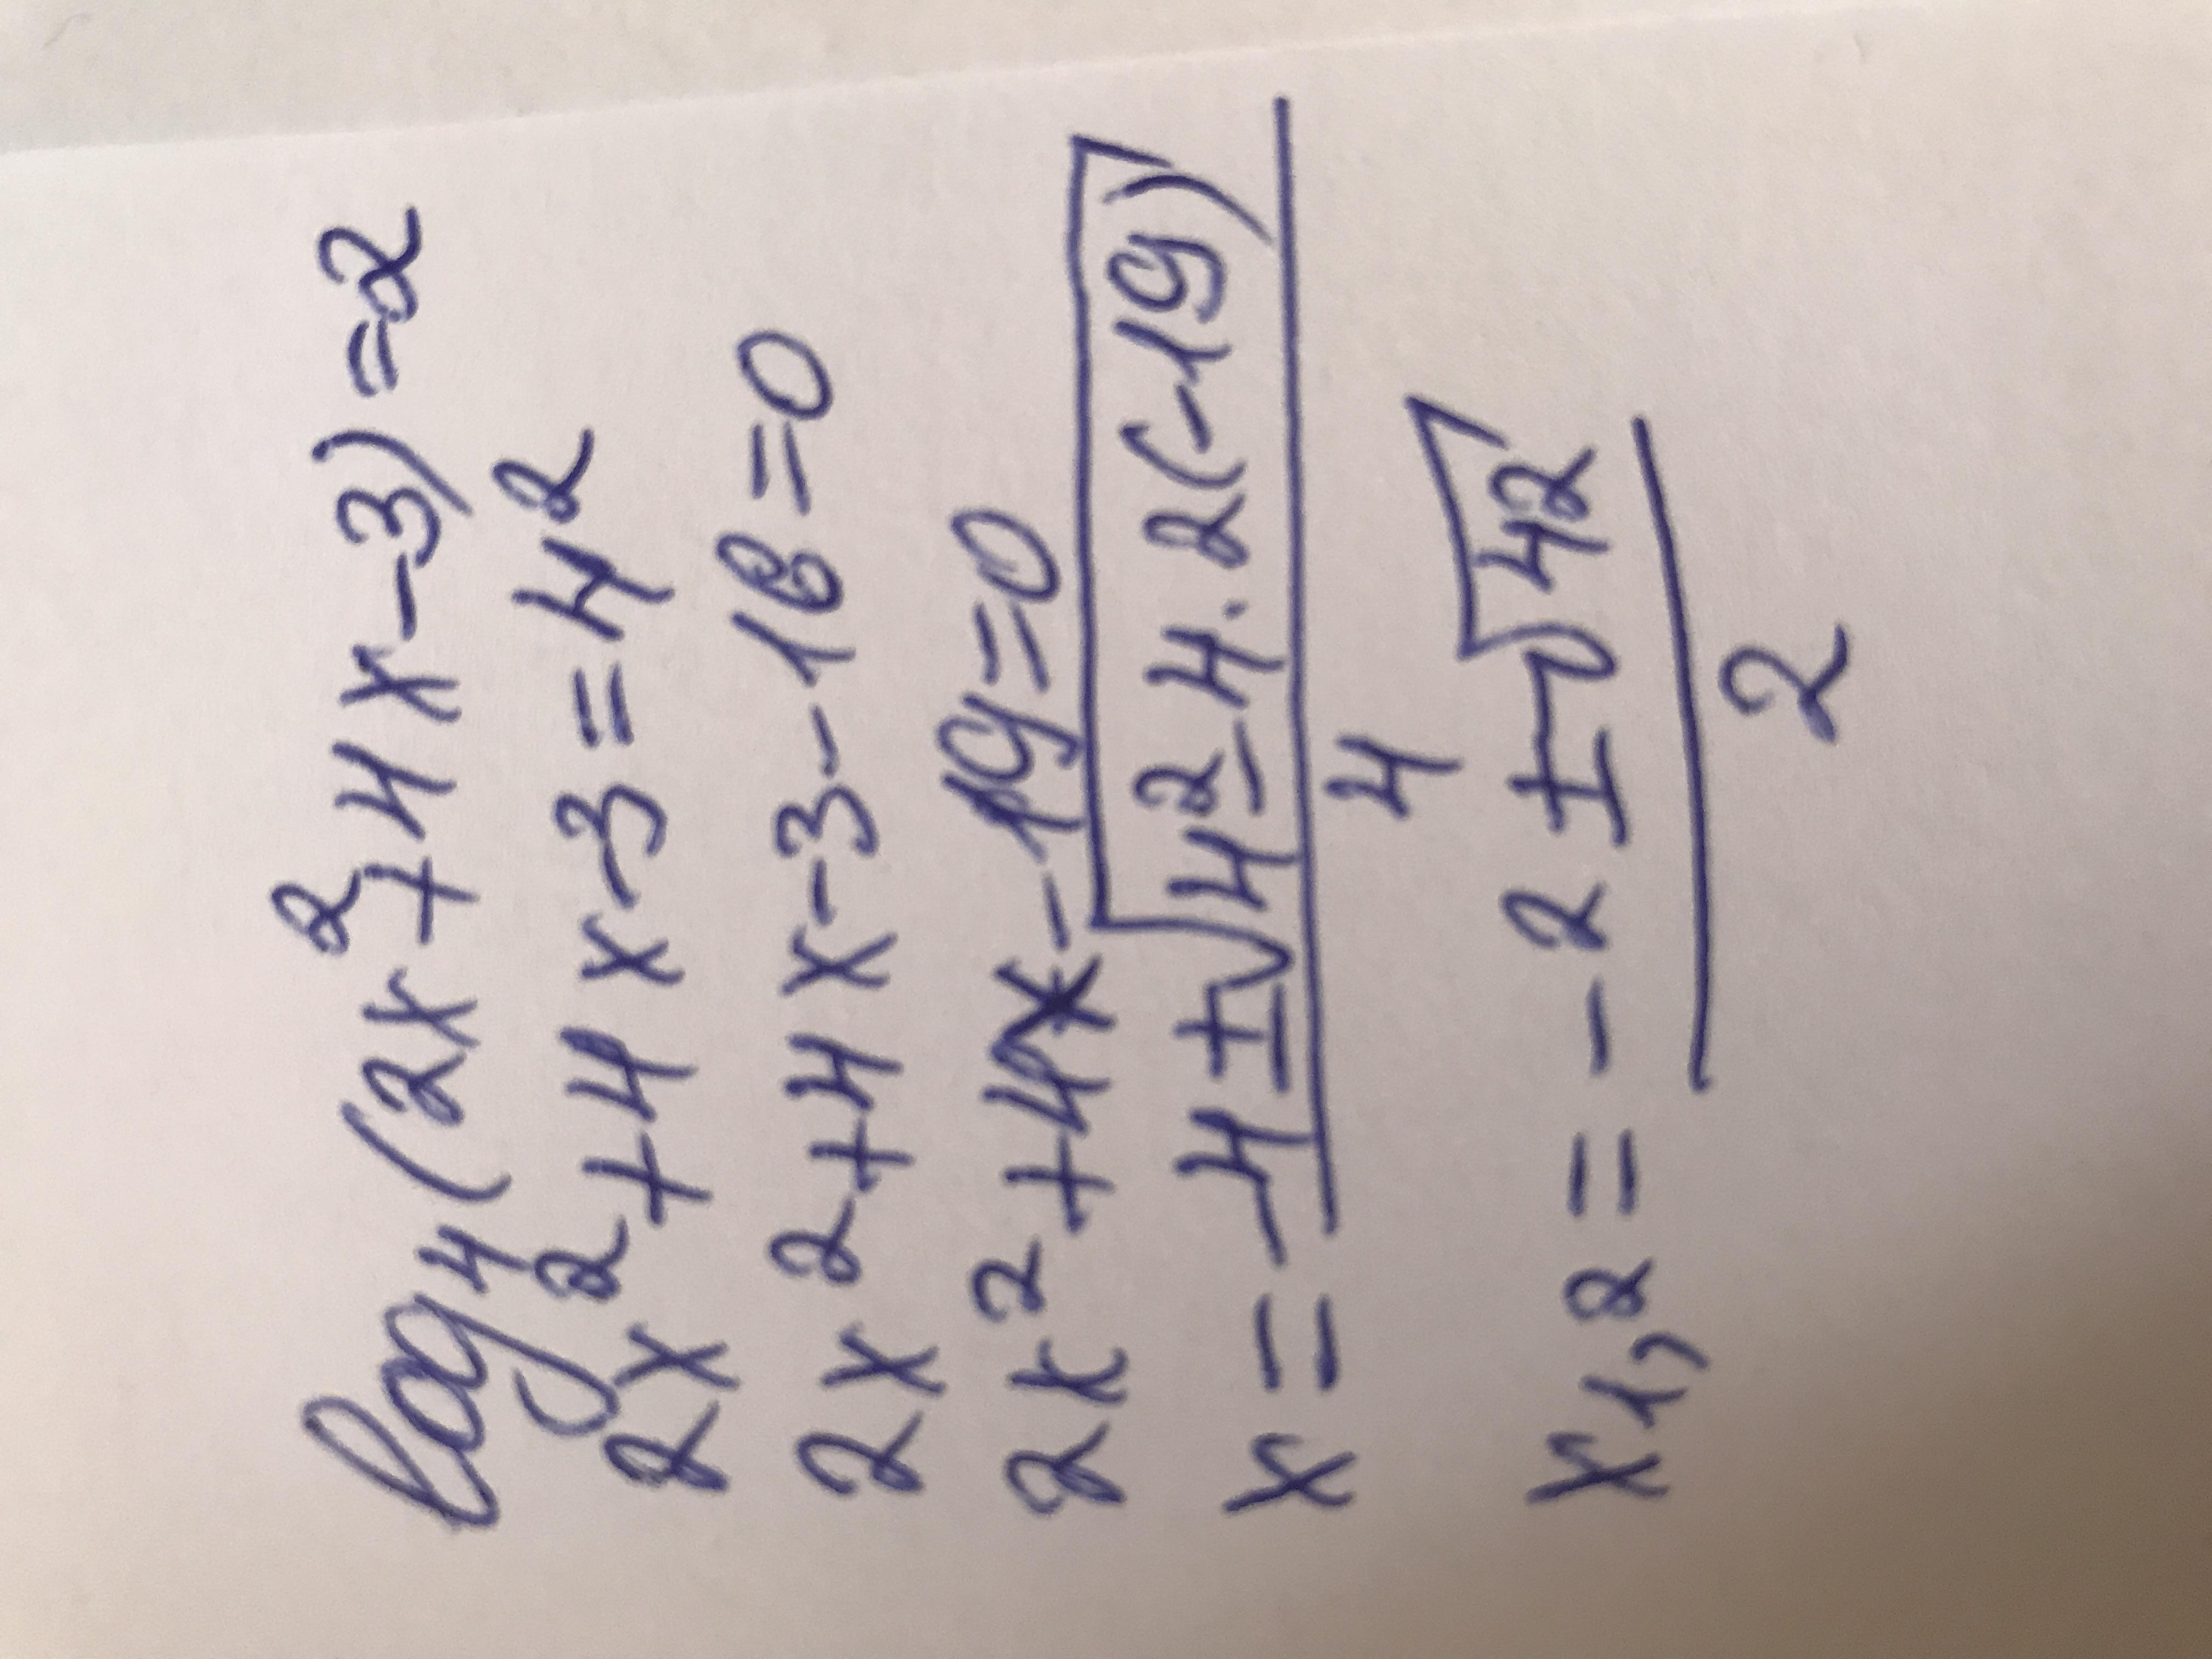 log₄(2x²+4x-3)=2
2x²+4x-3=4²
2x²+4x-3-16=0
2x²+4x-19=0
x=-4±√4²-4·2(-19)/4
x1,2=-2±√42/2